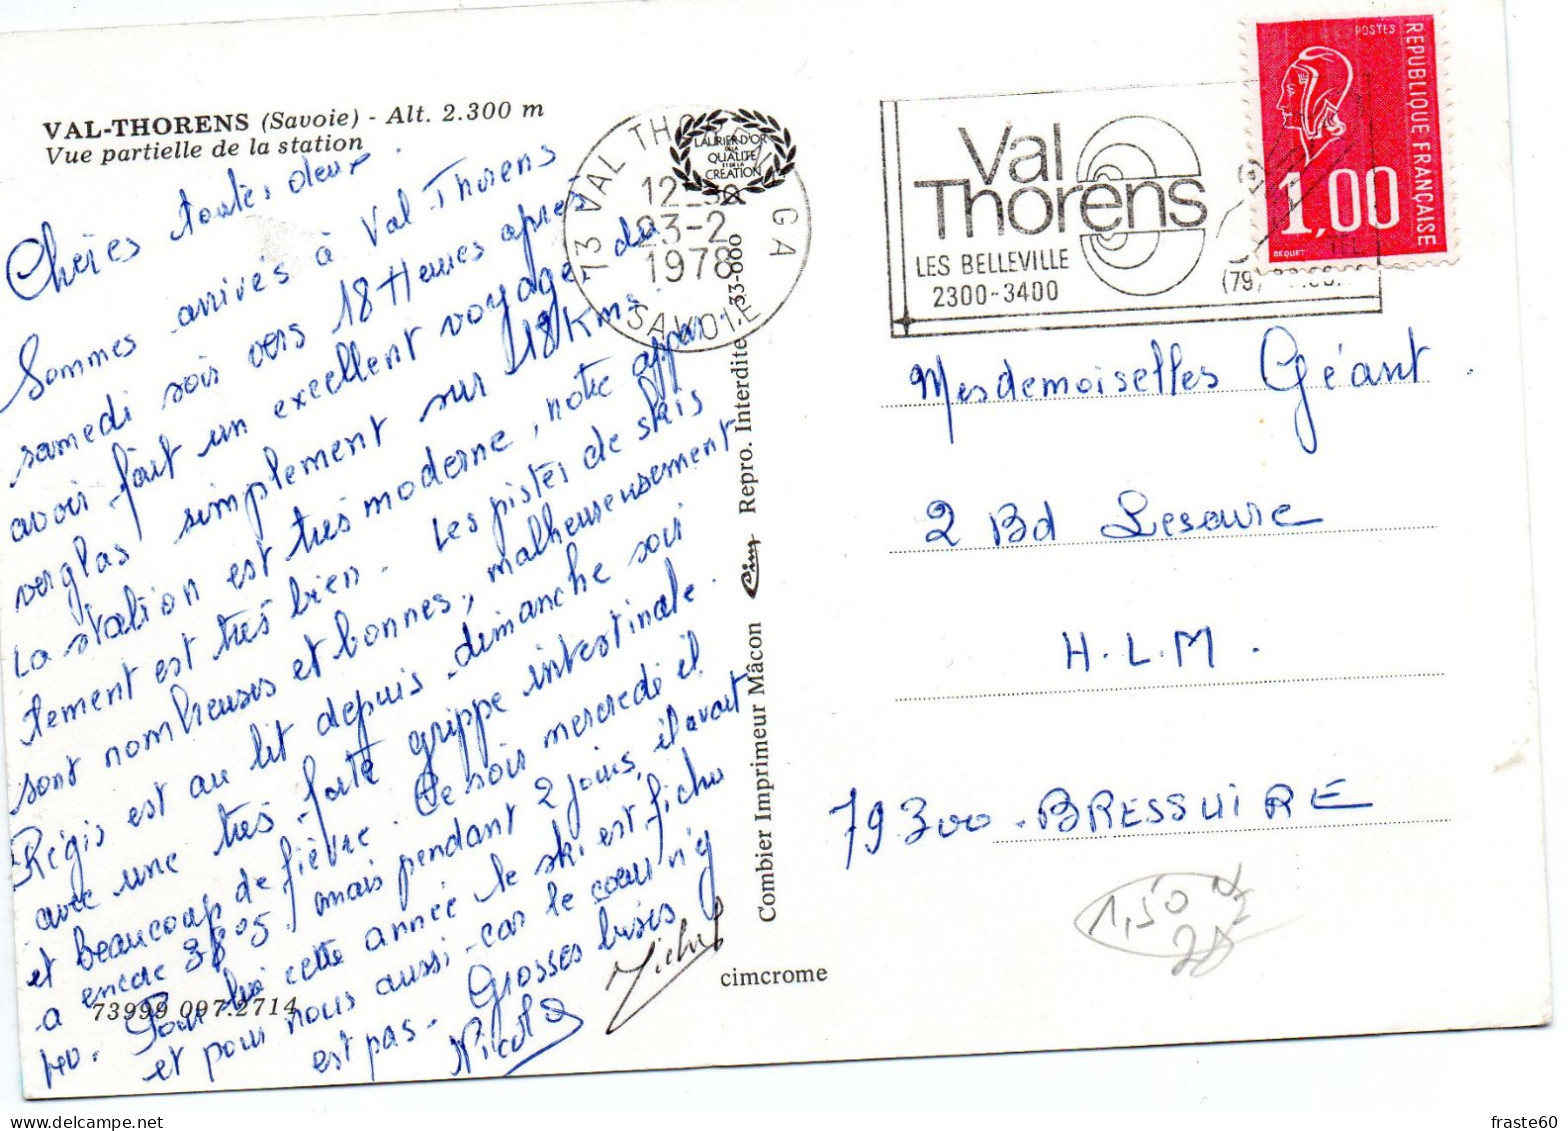 VAL-THORENS (Savoie) - Alt. 2.300 m
Vue partielle de la station
Chères toutes deux.
Sommes arrivés à Val Thorens
samedi soir vers 18 Heures après
avoir fait un excellent voyage du
verglas simplement sur 18 Kms.
La station est très moderne, notre appar-
tement est très bien. Les pistes de skis
sont nombreuses et bonnes, malheureusement
Régis est au lit depuis dimanche soir
avec une très forte grippe intestinale.
et beaucoup de fièvre. Ce soir mercredi il
a encore 38°5. mais pendant 2 jours, il avait
40. Pour lui cette année le ski est fichu
et pour nous aussi car le cœur n'y
est pas. Grosses bises
Nicole Michel
73999 097.2714
cimcrome
Combier Imprimeur Mâcon Cim Repro. Interdite 33-000
LAURIER D'OR
DE LA
QUALITÉ
ET DE LA
CRÉATION
73 VAL THORENS GA
12
23-2
1978
SAVOIE
Val
Thorens
LES BELLEVILLE
2300-3400
TEL.
(79)
POSTES
REPUBLIQUE FRANÇAISE
1,00
BEQUET
Mesdemoiselles Géant.
2 Bd Lescure
H.L.M.
79300 - BRESSUIRE
1,50
fraste60